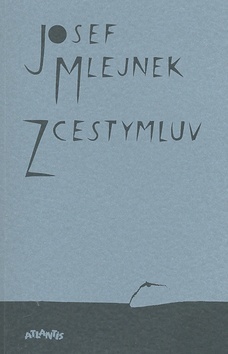 JOSEF
MLEJNEK
ZCESTYMLUV
ATLANTIS